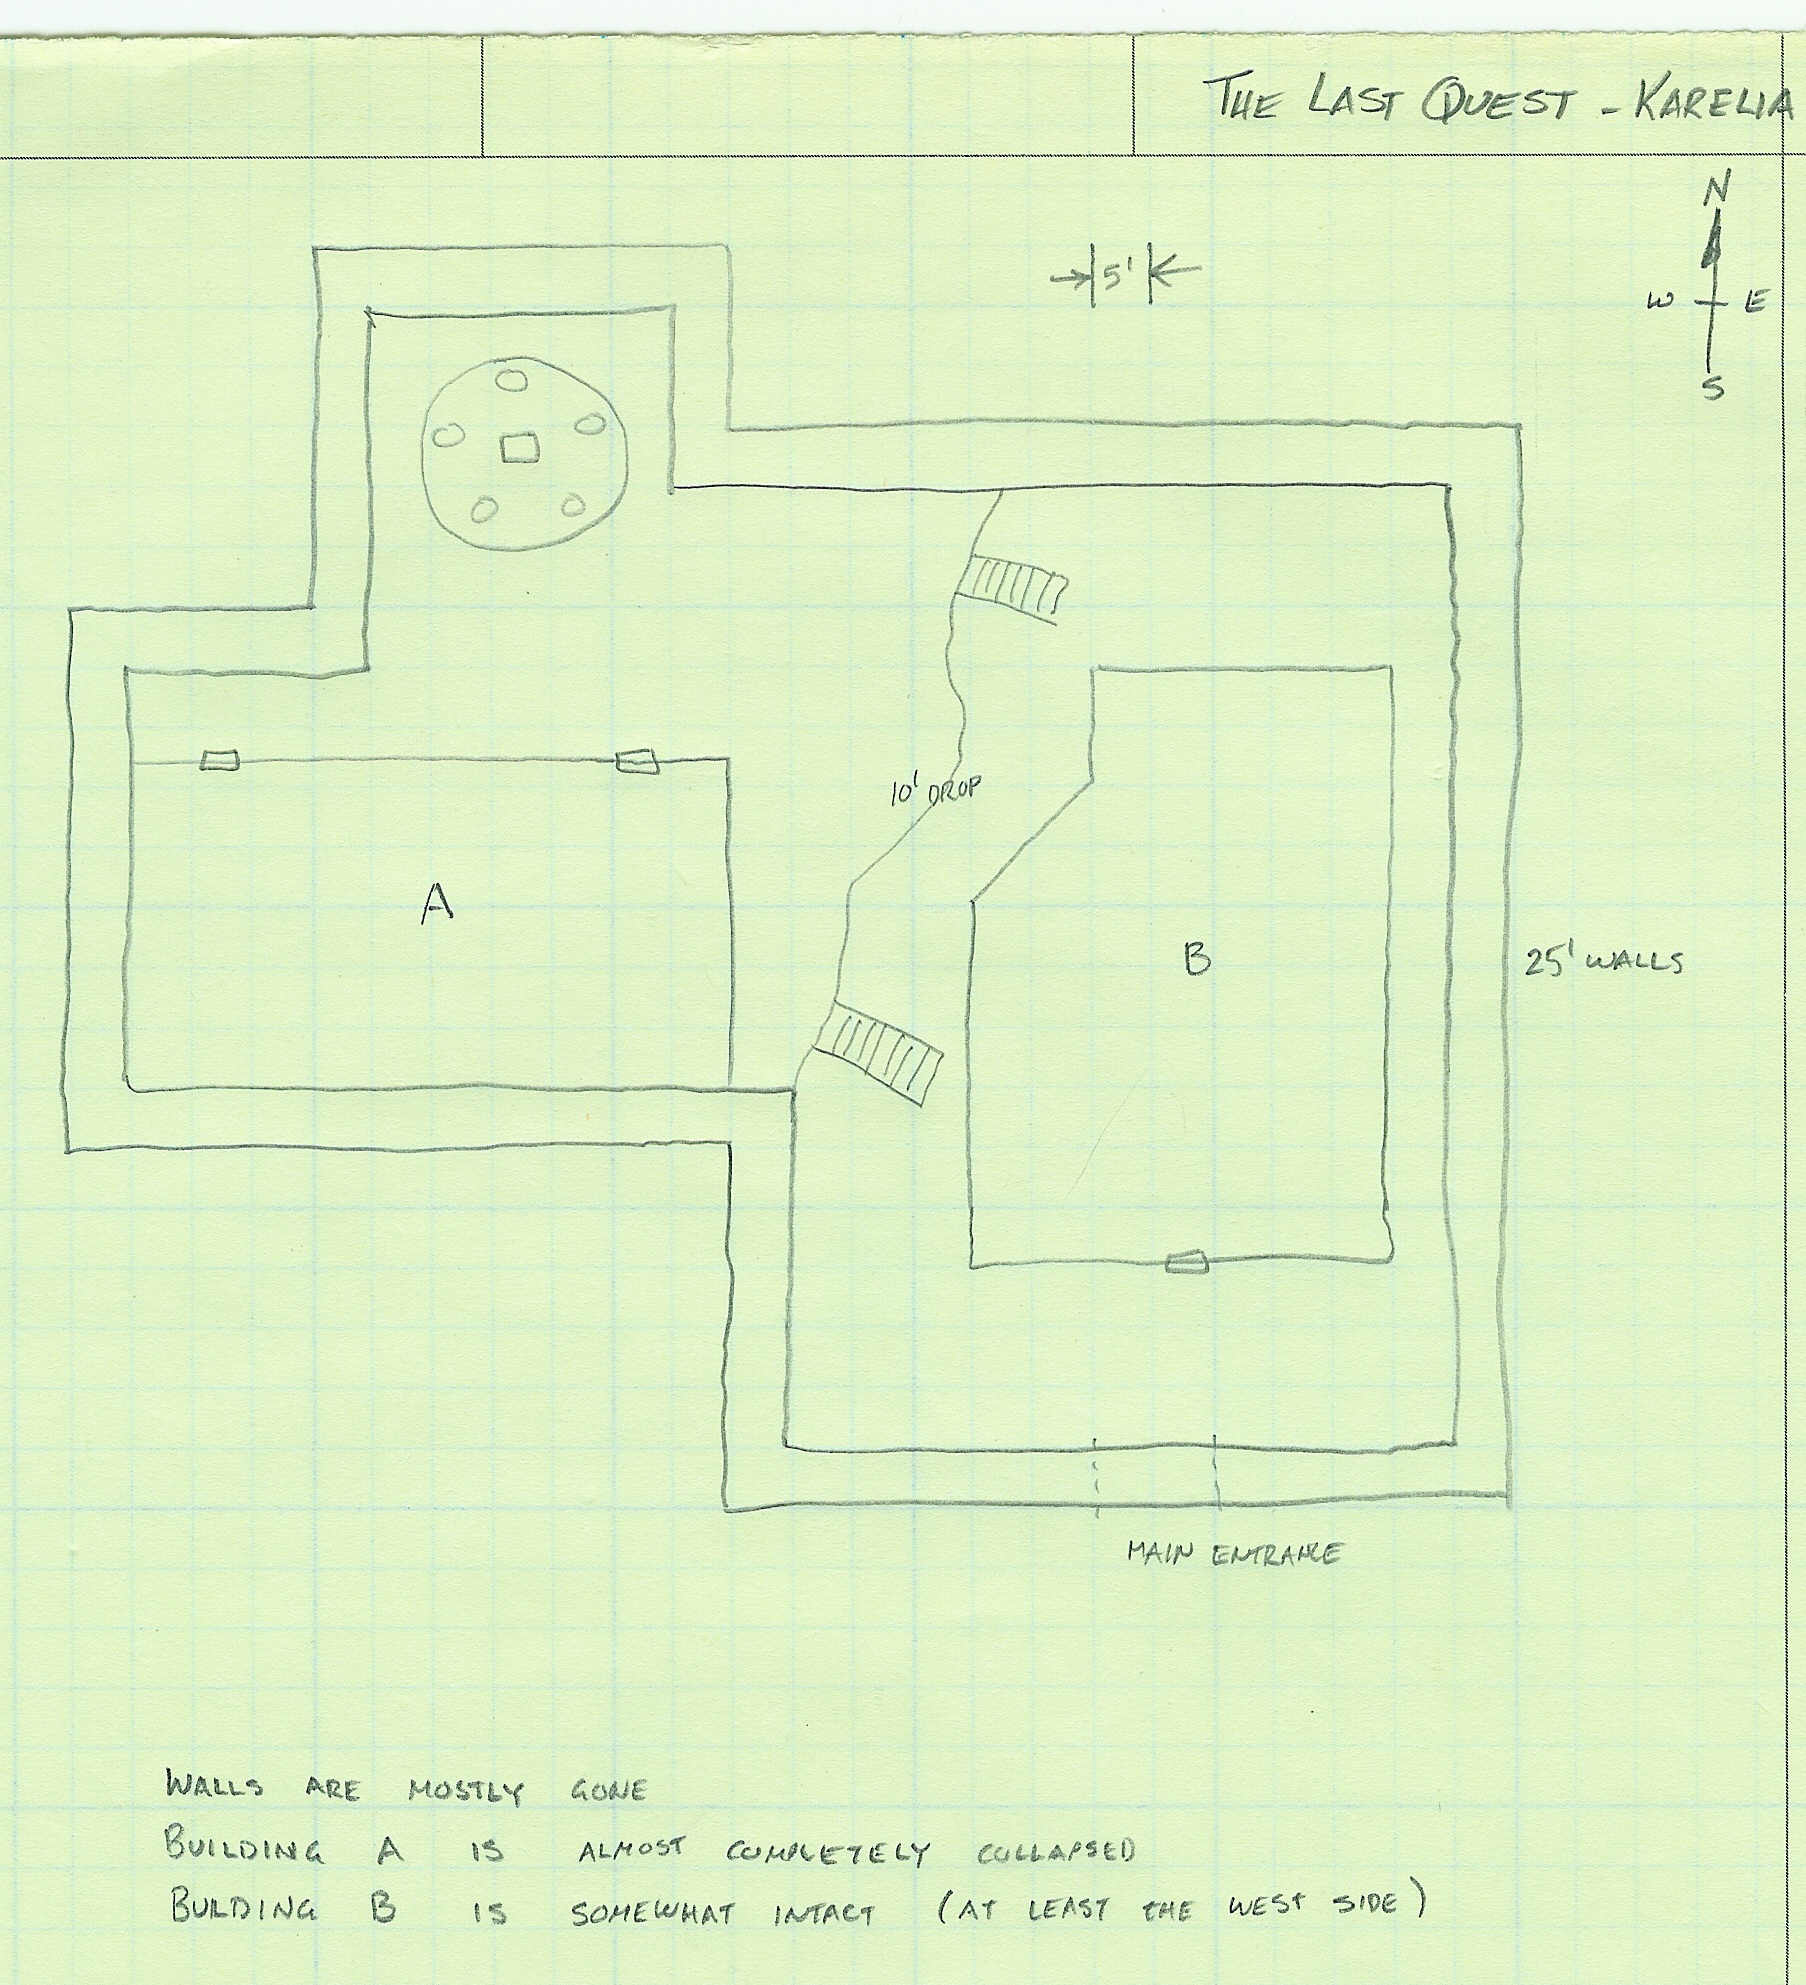 THE LAST QUEST - KARELIA
N
5'
W E
S
10' DROP
A
B
25' WALLS
MAIN ENTRANCE
WALLS ARE MOSTLY GONE
BUILDING A IS ALMOST COMPLETELY COLLAPSED
BUILDING B IS SOMEWHAT INTACT (AT LEAST THE WEST SIDE)